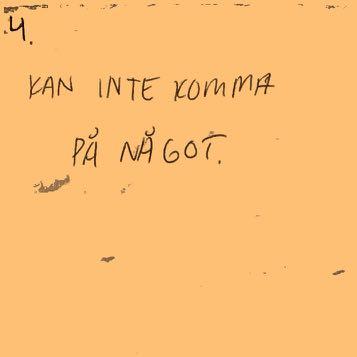 4.
KAN INTE KOMMA
PÅ NÅGOT.